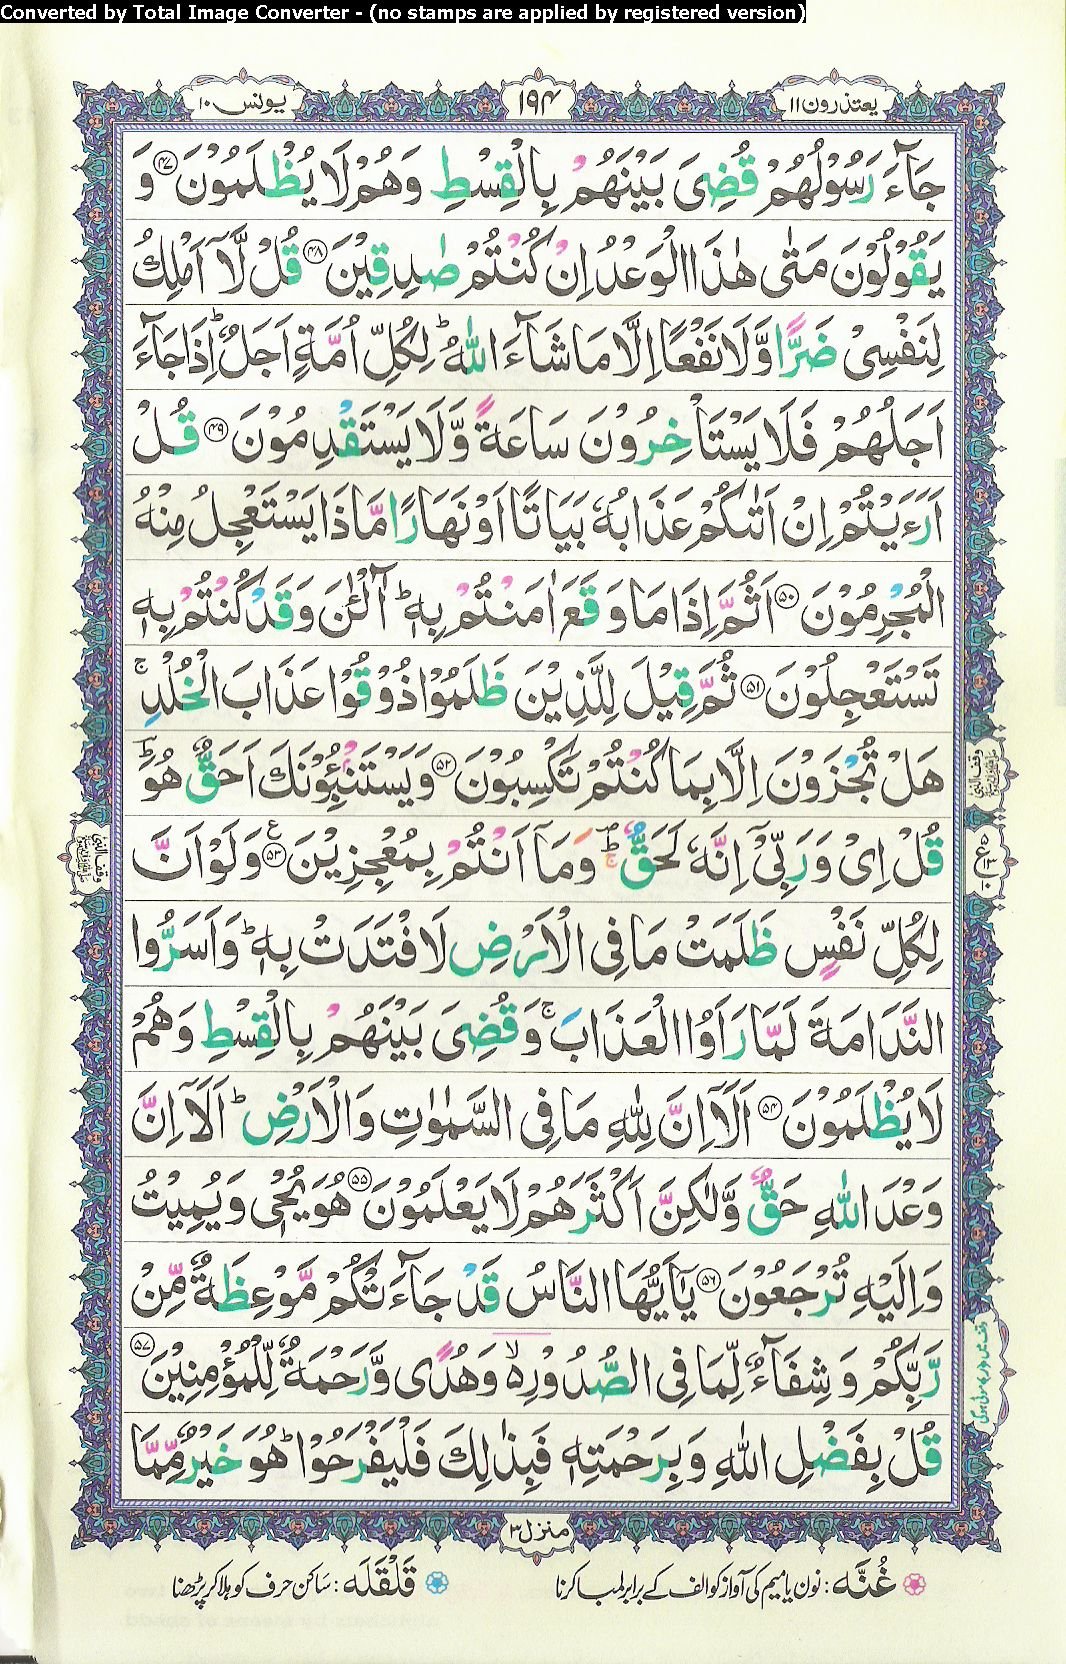 Converted by Total Image Converter - (no stamps are applied by registered version)
یعتذرون ۱۱
۱۹۴
یونس ۱۰
جَآءَ رَسُوْلُهُمْ قُضِیَ بَیْنَهُمْ بِالْقِسْطِ وَهُمْ لَا یُظْلَمُوْنَ ۴۷ وَ
یَقُوْلُوْنَ مَتٰی هٰذَا الْوَعْدُ اِنْ كُنْتُمْ صٰدِقِیْنَ ۴۸ قُلْ لَّاۤ اَمْلِكُ
لِنَفْسِیْ ضَرًّا وَّلَا نَفْعًا اِلَّا مَا شَآءَ اللّٰهُ ؕ لِكُلِّ اُمَّةٍ اَجَلٌ ؕ اِذَا جَآءَ
اَجَلُهُمْ فَلَا یَسْتَاْخِرُوْنَ سَاعَةً وَّلَا یَسْتَقْدِمُوْنَ ۴۹ قُلْ
اَرَءَیْتُمْ اِنْ اَتٰىكُمْ عَذَابُهٗ بَیَاتًا اَوْ نَهَارًا مَّاذَا یَسْتَعْجِلُ مِنْهُ
الْمُجْرِمُوْنَ ۵۰ اَثُمَّ اِذَا مَا وَقَعَ اٰمَنْتُمْ بِهٖ ؕ آٰلْـٰٔنَ وَقَدْ كُنْتُمْ بِهٖ
تَسْتَعْجِلُوْنَ ۵۱ ثُمَّ قِیْلَ لِلَّذِیْنَ ظَلَمُوْا ذُوْقُوْا عَذَابَ الْخُلْدِ ۚ
هَلْ تُجْزَوْنَ اِلَّا بِمَا كُنْتُمْ تَكْسِبُوْنَ ۵۲ وَیَسْتَنْۢبِـُٔوْنَكَ اَحَقٌّ هُوَ ؕ
قُلْ اِیْ وَرَبِّیْۤ اِنَّهٗ لَحَقٌّ ؕ وَمَاۤ اَنْتُمْ بِمُعْجِزِیْنَ ۵۳ وَلَوْ اَنَّ
لِكُلِّ نَفْسٍ ظَلَمَتْ مَا فِی الْاَرْضِ لَافْتَدَتْ بِهٖ ؕ وَاَسَرُّوا
النَّدَامَةَ لَمَّا رَاَوُا الْعَذَابَ ۚ وَقُضِیَ بَیْنَهُمْ بِالْقِسْطِ وَهُمْ
لَا یُظْلَمُوْنَ ۵۴ اَلَاۤ اِنَّ لِلّٰهِ مَا فِی السَّمٰوٰتِ وَالْاَرْضِ ؕ اَلَاۤ اِنَّ
وَعْدَ اللّٰهِ حَقٌّ وَّلٰكِنَّ اَكْثَرَهُمْ لَا یَعْلَمُوْنَ ۵۵ هُوَ یُحْیٖ وَیُمِیْتُ
وَاِلَیْهِ تُرْجَعُوْنَ ۵۶ یٰۤاَیُّهَا النَّاسُ قَدْ جَآءَتْكُمْ مَّوْعِظَةٌ مِّنْ
رَّبِّكُمْ وَشِفَآءٌ لِّمَا فِی الصُّدُوْرِ ۙ۬ وَهُدًی وَّرَحْمَةٌ لِّلْمُؤْمِنِیْنَ ۵۷
قُلْ بِفَضْلِ اللّٰهِ وَبِرَحْمَتِهٖ فَبِذٰلِكَ فَلْیَفْرَحُوْا ؕ هُوَ خَیْرٌ مِّمَّا
منزل ۳
غُنَّه : نون یا میم کی آواز کو الف کے برابر لمبا کرنا
قَلْقَلَه : ساکن حرف کو ہلا کر پڑھنا